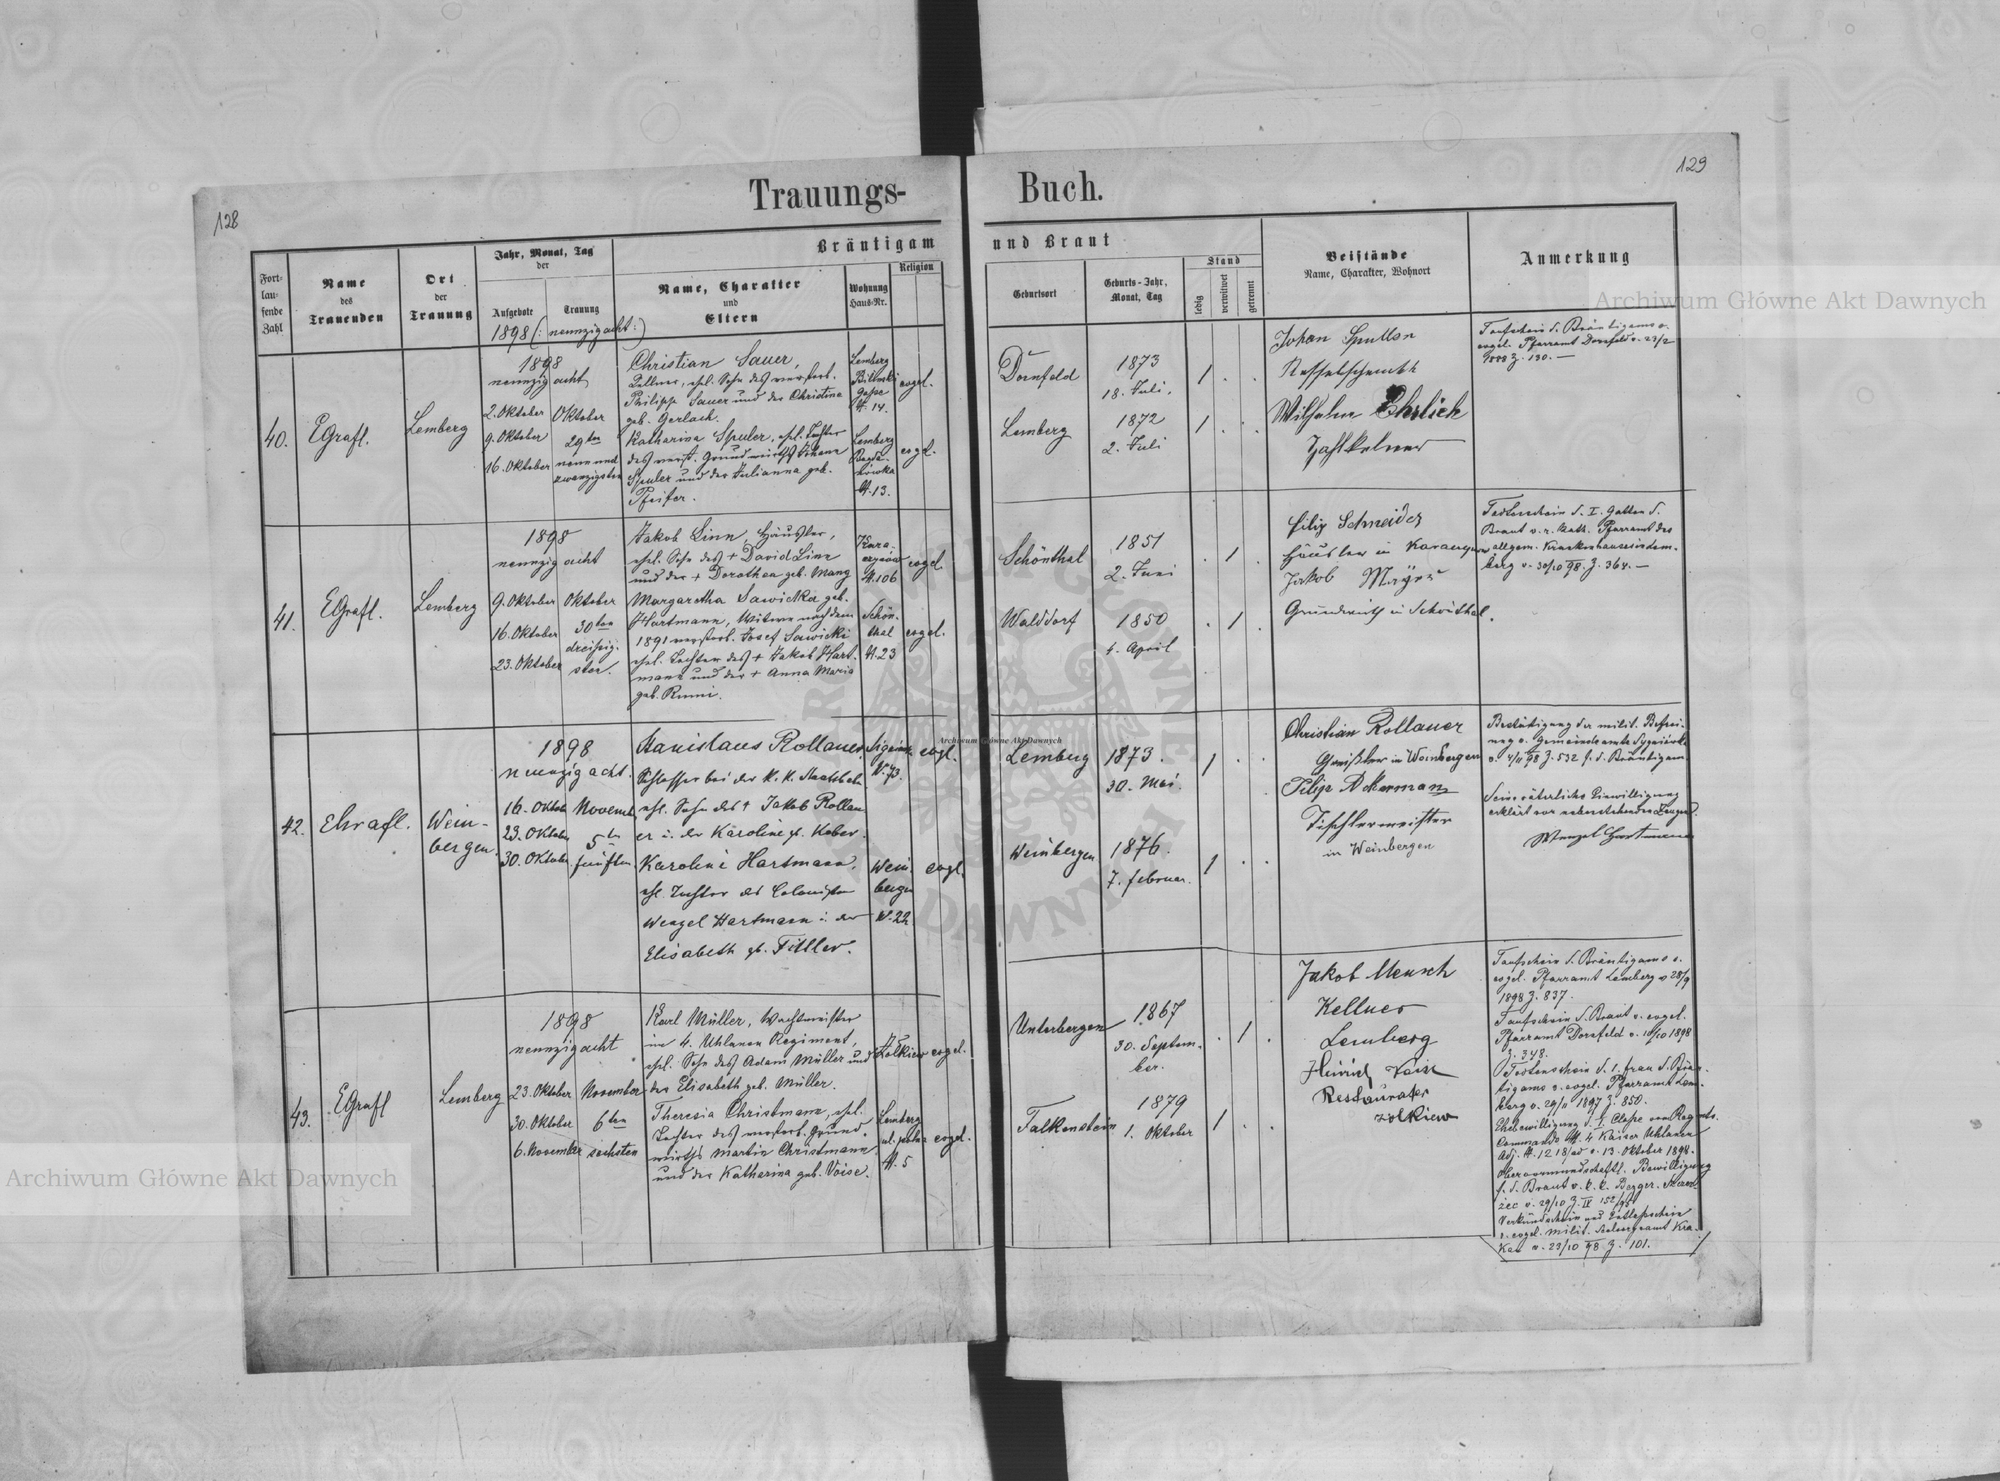 128
Trauungs-
Buch.
129
Fort-
lau-
fende
Zahl
Name
des
Trauenden
Ort
der
Trauung
Jahr, Monat, Tag
der
Aufgebote
Trauung
Bräutigam
und Braut
Name, Charakter
und
Eltern
Wohnung
Haus-Nr.
Religion
Geburtsort
Geburts-Jahr,
Monat, Tag
Stand
ledig
verwitwet
getrennt
Beistände
Name, Charakter, Wohnort
Anmerkung
1898 (: neunzig acht :)
40.
EGrafl.
Lemberg
1898
neunzig acht
2. Oktober
9. Oktober
16. Oktober
Oktober
29ten
neun und
zwanzigsten
Christian Sauer,
Zellner, ehel. Sohn des verstorb.
Philipp Sauer und der Christine
geb. Gerlach.
Lemberg
Gasse
N. 14.
evgel.
Katharina Spuler, ehel. Tochter
des verst. Grundwirths Johann
Spuler und der Julianna geb.
Pfeifer.
Lemberg
Bogda-
nówka
N. 13.
evgl.
Dornfeld
1873
18. Juli.
Lemberg
1872
2. Juli
Johan
Wilhelm Ehrlich
Zahlkelner
Taufschein d. Bräutigams v.
evgel. Pfarramt Dornfeld v. 23/2
1888 Z. 130. —
41.
EGrafl.
Lemberg
1898
neunzig acht
9. Oktober
16. Oktober
23. Oktober
Oktober
30ten
dreißig-
sten.
Jakob Linn, Häusler,
ehel. Sohn des + David Linn
und der + Dorothea geb. Mang
N. 106
evgel.
Margaretha Sawicka geb.
Hartmann, Witwe nach dem
1891 verstorb. Josef Sawicki
ehel. Tochter des + Jakob Hart-
mann und der + Anna Maria
geb. Rumi.
Schön-
thal
N. 23
evgel.
Schönthal
1851
2. Juni
Walddorf
1850
4. April
Filip Schneider
Häusler in
Jakob Mayer
Grundwirth in Schönthal.
Todtenschein d. I. Gatten d.
Braut v. r. kath. Pfarramt des
allgem. Krankenhauses in Lem-
berg v. 30/10 98. Z. 364. —
42.
Ehrafl.
Wein-
bergen.
1898
neunzig acht.
16. Oktob.
23. Oktober
30. Oktober
Novemb.
5ten
fünften
Stanislaus Rollauer,
Schlosser bei der K. K. Staatsbahn
ehl. Sohn des + Jakob Rollau-
er u. der Karoline g. Kober.
N. 73.
evgl.
Karoline Hartmann,
ehl. Tochter des Colonisten
Wenzel Hartmann u. der
Elisabeth gb. Tittler.
Wein-
bergen
N. 22
evgl.
Lemberg
1873.
30. Mai.
Weinbergen
1876.
7. Februar.
Christian Rollauer
Greißler in Weinbergen
Filip Ackermann
Tischlermeister
in Weinbergen
Bestätigung der milit. Befrei-
ung v. Gemeindeamte Sygniówka
v. 4/11 98 Z. 532 f. d. Bräutigam
Seine väterliche Einwilligung
erklärt vor nebenstehenden Zeugen.
Wenzel Hartmann
43.
EGrafl
Lemberg
1898
neunzig acht
23. Oktober
30. Oktober
6. November
November
6ten
sechsten
Karl Müller, Wachtmeister
im 4. Uhlanen Regiment,
ehel. Sohn des Adam Müller und
der Elisabeth geb. Müller.
Żołkiew
evgel.
Theresia Christmann, ehel.
Tochter des verstorb. Grund-
wirths Martin Christmann
und der Katharina geb. Voise.
Lemberg
N. 5
evgel.
Unterbergen
1867
30. Septem-
ber.
Falkenstein
1879
1. Oktober
Jakob Mensch
Kellner
Lemberg
Heinrich
Restaurater
Zolkiew
Taufschein d. Bräutigams v.
evgel. Pfarramt Lemberg v. 28/9
1898 Z. 837.
Taufschein d. Braut v. evgel.
Pfarramt Dornfeld v. 10/10 1898
Z. 348.
Todtenschein d. 1. Frau d. Bräu-
tigams v. evgel. Pfarramt Lem-
berg v. 29/11 1897 Z. 850.
Ehebewilligung d. I. Classe vom Regmts.
Commando N. 4 Kaiser Uhlanen
Adj. N. 1218/ad v. 13. Oktober 1898.
Obervormundschaftl. Bewilligung
f. d. Braut v. k. k. Bezger.
v. 29/10 Z. IV 152/98
Verkündschein und Entlaßschein
v. evgel. milit. Seelsorgeamt Kra-
kau v. 23/10 98 Z. 101.
Archiwum Główne Akt Dawnych
Archiwum Główne Akt Dawnych
Archiwum Główne Akt Dawnych